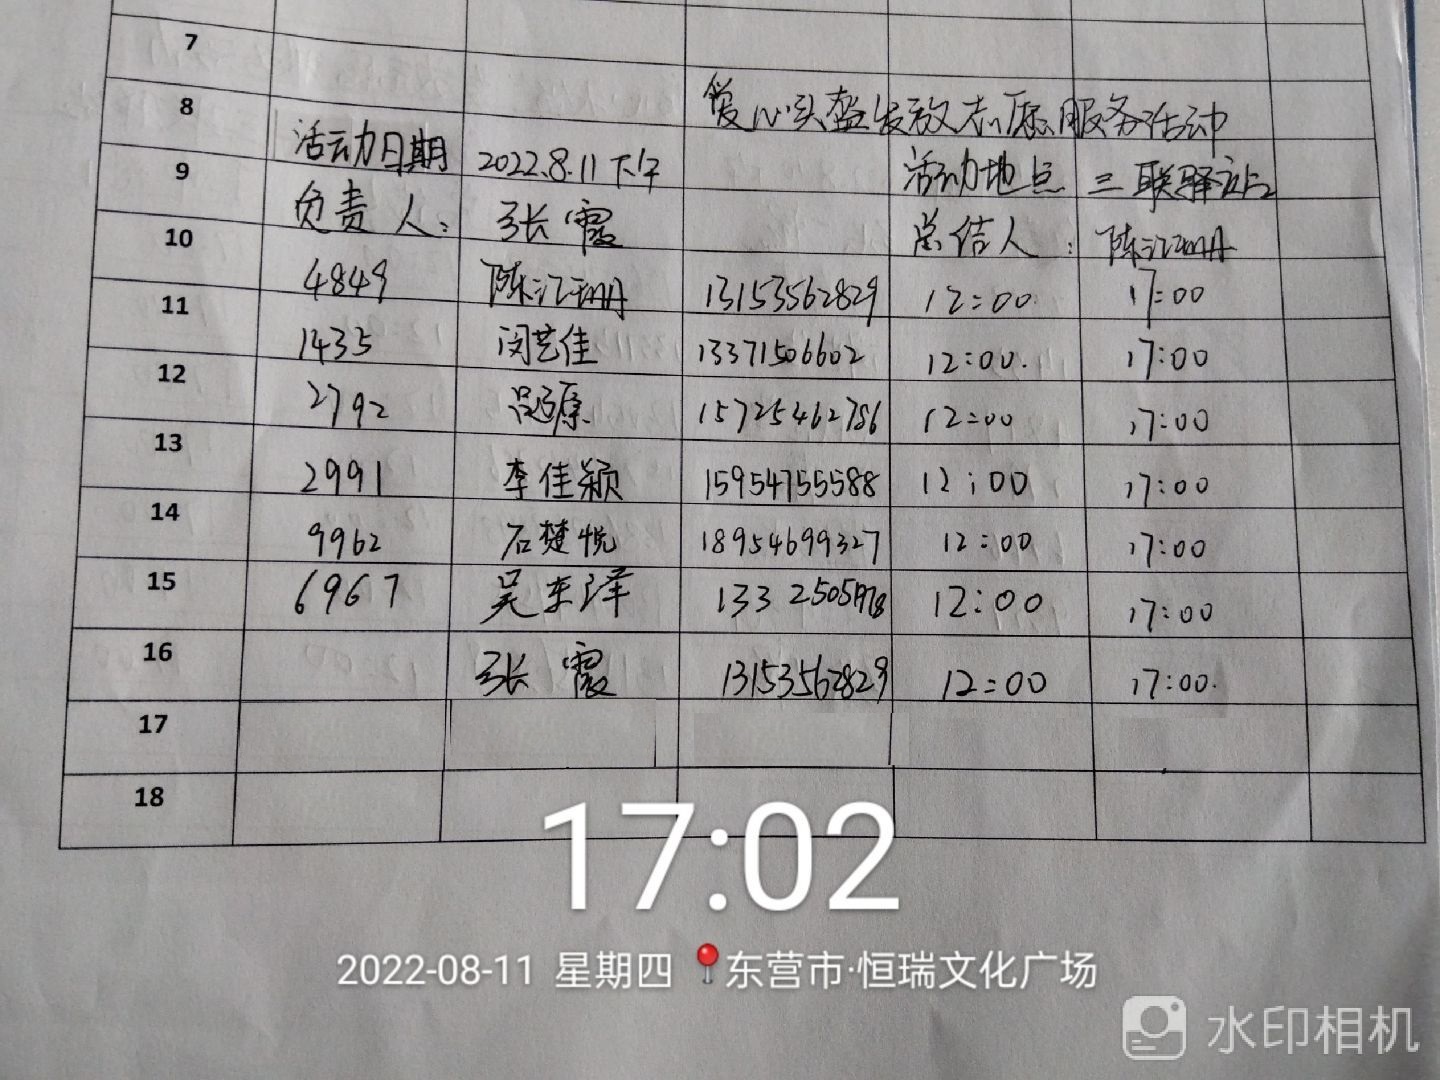 7
8 爱心头盔发放志愿服务活动
9 活动日期 2022.8.11下午 活动地点 三联驿站
10 负责人: 张霞 总结人:
11 4849 13153562829 12:00 17:00
12 1435 闵艺佳 13371506602 12:00. 17:00
13 2792 15725462786 12:00 17:00
14 2991 李佳颖 15954755588 12:00 17:00
15 9962 石楚悦 18954699327 12:00 17:00
16 6967 吴东泽 12:00 17:00
张霞 13153562829 12:00 17:00.
17
18
17:02
2022-08-11 星期四 东营市·恒瑞文化广场
水印相机